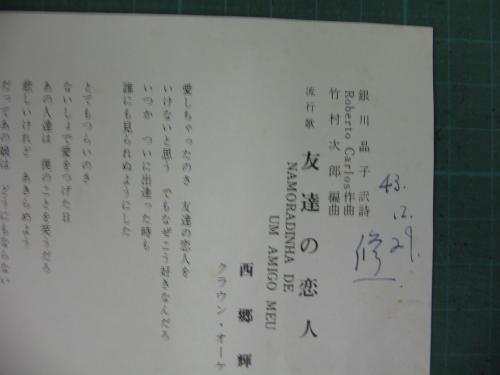 銀川晶子訳詩
Roberto Carlos作曲
竹村次郎編曲
43.
12.
29.
修
流行歌 友達の恋人
NAMORADINHA DE
UM AMIGO MEU
西郷輝
クラウン・オーケ
愛しちゃったのさ 友達の恋人を
いけないと思う でもなぜこう好きなんだろ
いつか ついに出逢った時も
誰にも見られぬようにした
とてもつらいのさ
ないしょで愛をつげた日
あの人達は 僕のことを笑うだろ
悲しいけれど あきらめよう
だってあの娘は どうにもならない